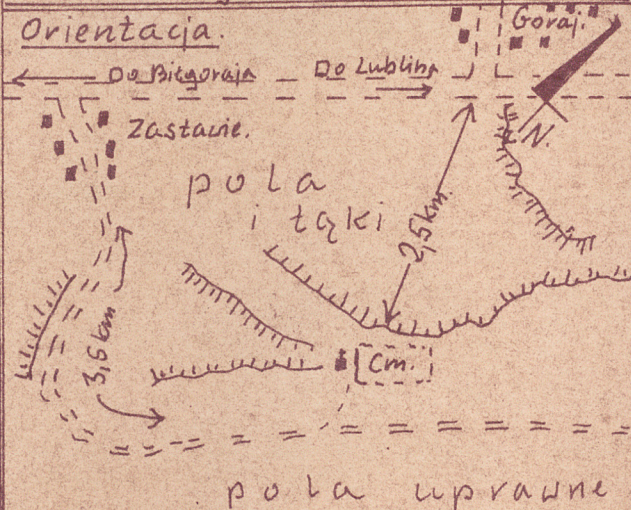 Orientacja.
Goraj.
Do Biłgoraja
Do Lublina
N.
Zastawie.
pola
i łąki
2,5km.
3,5km
Cm.
pola uprawne